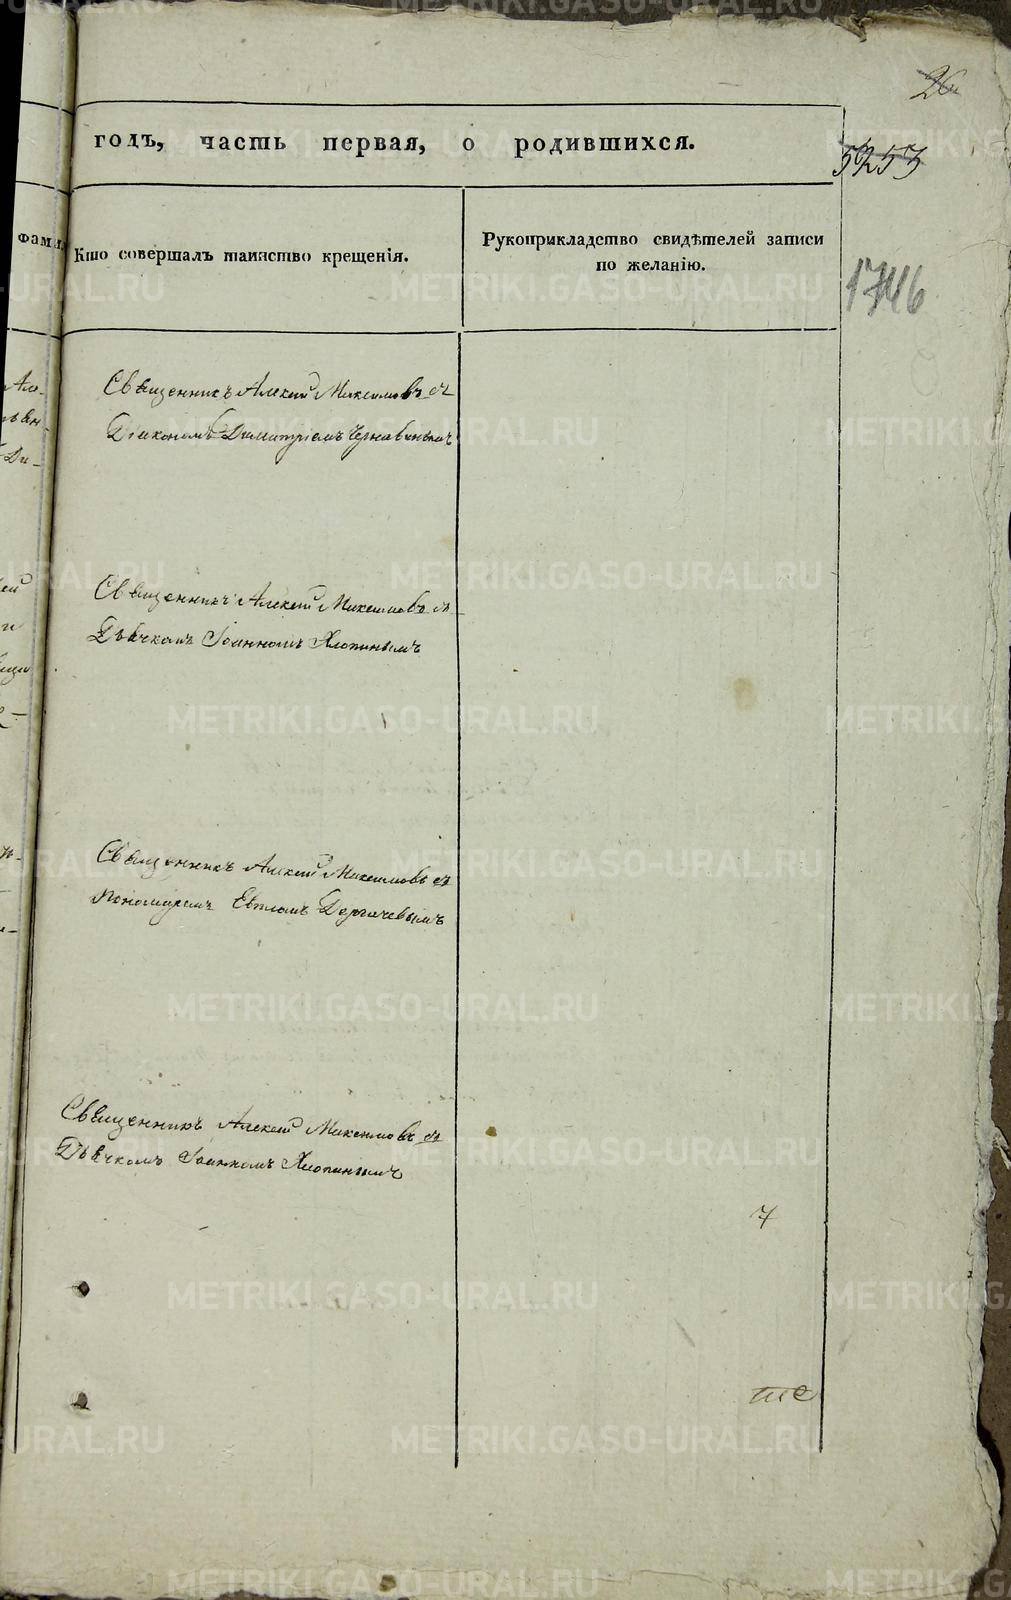 26
годъ, часть первая, о родившихся.
5253
фами
Кто совершалъ таинство крещенія.
Рукоприкладство свидѣтелей записи
по желанію.
1746
Священникъ Алексій Максимовъ съ
Діакономъ Димитріемъ
Священникъ Алексій Максимовъ съ
Дьячкомъ Іоанномъ Хлопинымъ
Священникъ Алексій Максимовъ съ
Пономаремъ Евтіомъ Дергачевымъ
Священникъ Алексій Максимовъ съ
Дьячкомъ Іоанномъ Хлопинымъ
7
METRIKI.GASO-URAL.RU